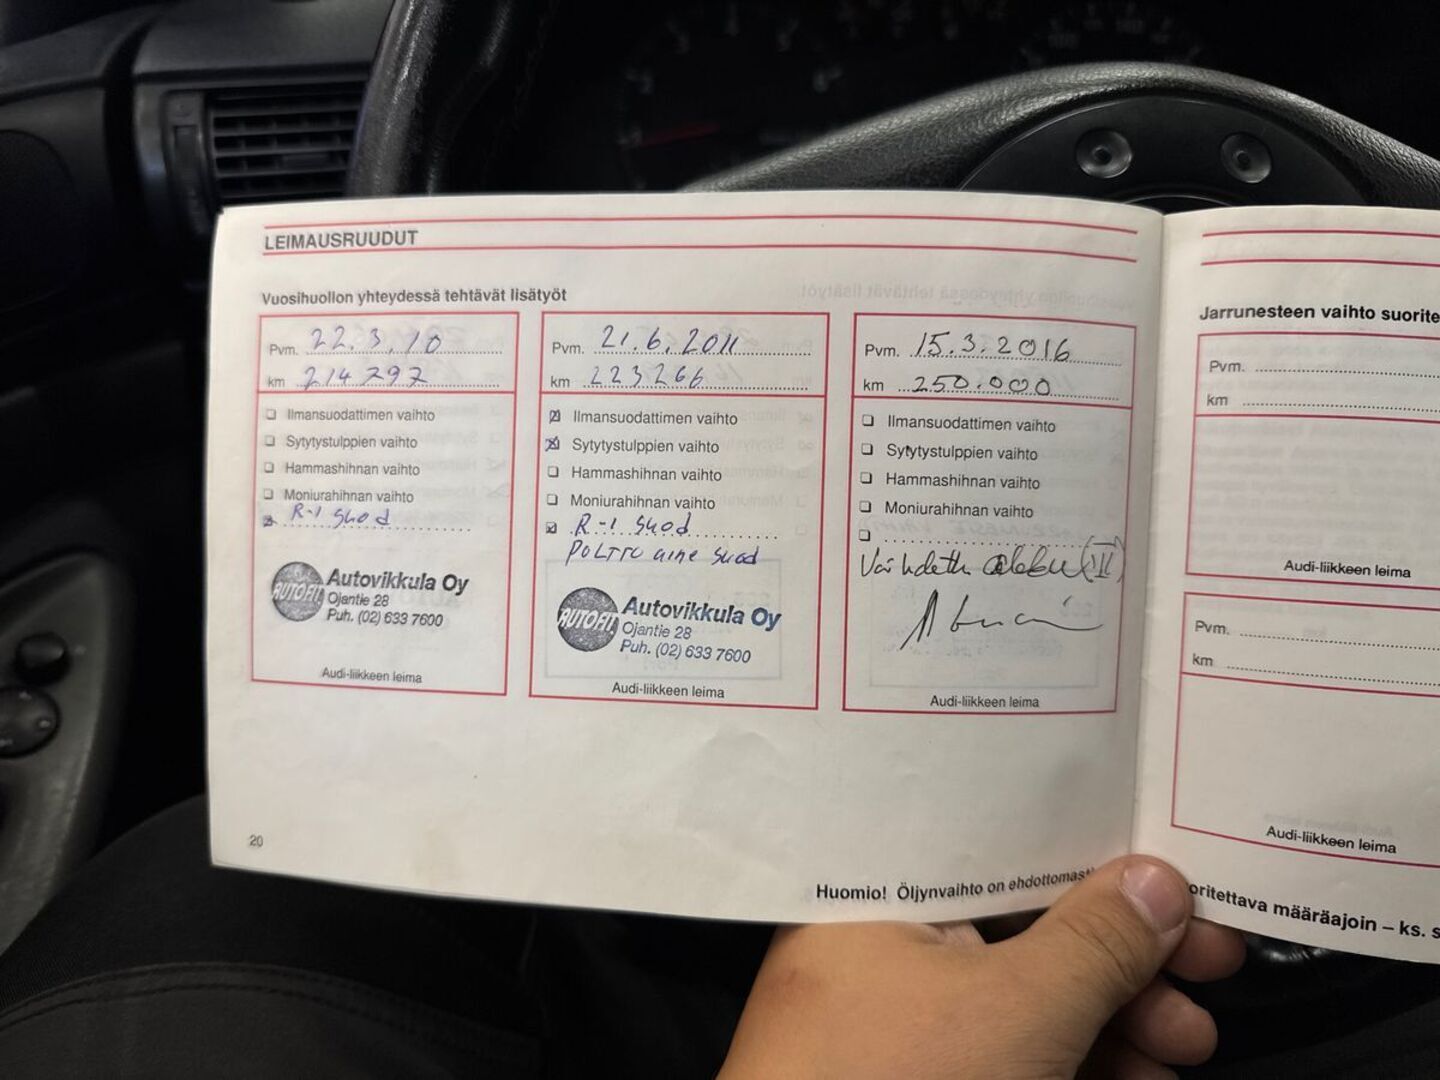 LEIMAUSRUUDUT
Vuosihuollon yhteydessä tehtävät lisätyöt
Pvm. 22.3.10
km 214297
Ilmansuodattimen vaihto
Sytytystulppien vaihto
Hammashihnan vaihto
Moniurahihnan vaihto
R-1 suod
AUTOFIT Autovikkula Oy
Ojantie 28
Puh. (02) 633 7600
Audi-liikkeen leima
Pvm. 21.6.2011
km 223266
Ilmansuodattimen vaihto
Sytytystulppien vaihto
Hammashihnan vaihto
Moniurahihnan vaihto
R-1 suod
POLTTO aine suod
AUTOFIT Autovikkula Oy
Ojantie 28
Puh. (02) 633 7600
Audi-liikkeen leima
Pvm. 15.3.2016
km 250.000
Ilmansuodattimen vaihto
Sytytystulppien vaihto
Hammashihnan vaihto
Moniurahihnan vaihto
Audi-liikkeen leima
20
Huomio! Öljynvaihto on ehdottomast
Jarrunesteen vaihto suorite
Pvm.
km
Audi-liikkeen leima
Pvm.
km
Audi-liikkeen leima
oritettava määräajoin – ks. s